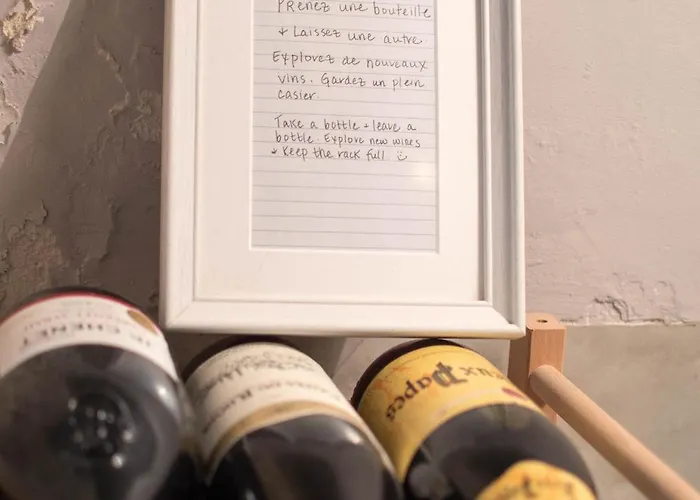 PRenez une bouteille
+ Laissez une autre.
Explorez de nouveaux
vins. Gardez un plein
casier.
Take a bottle + leave a
bottle. Explore new wines
+ Keep the rack full ☺
CHENET
Papes